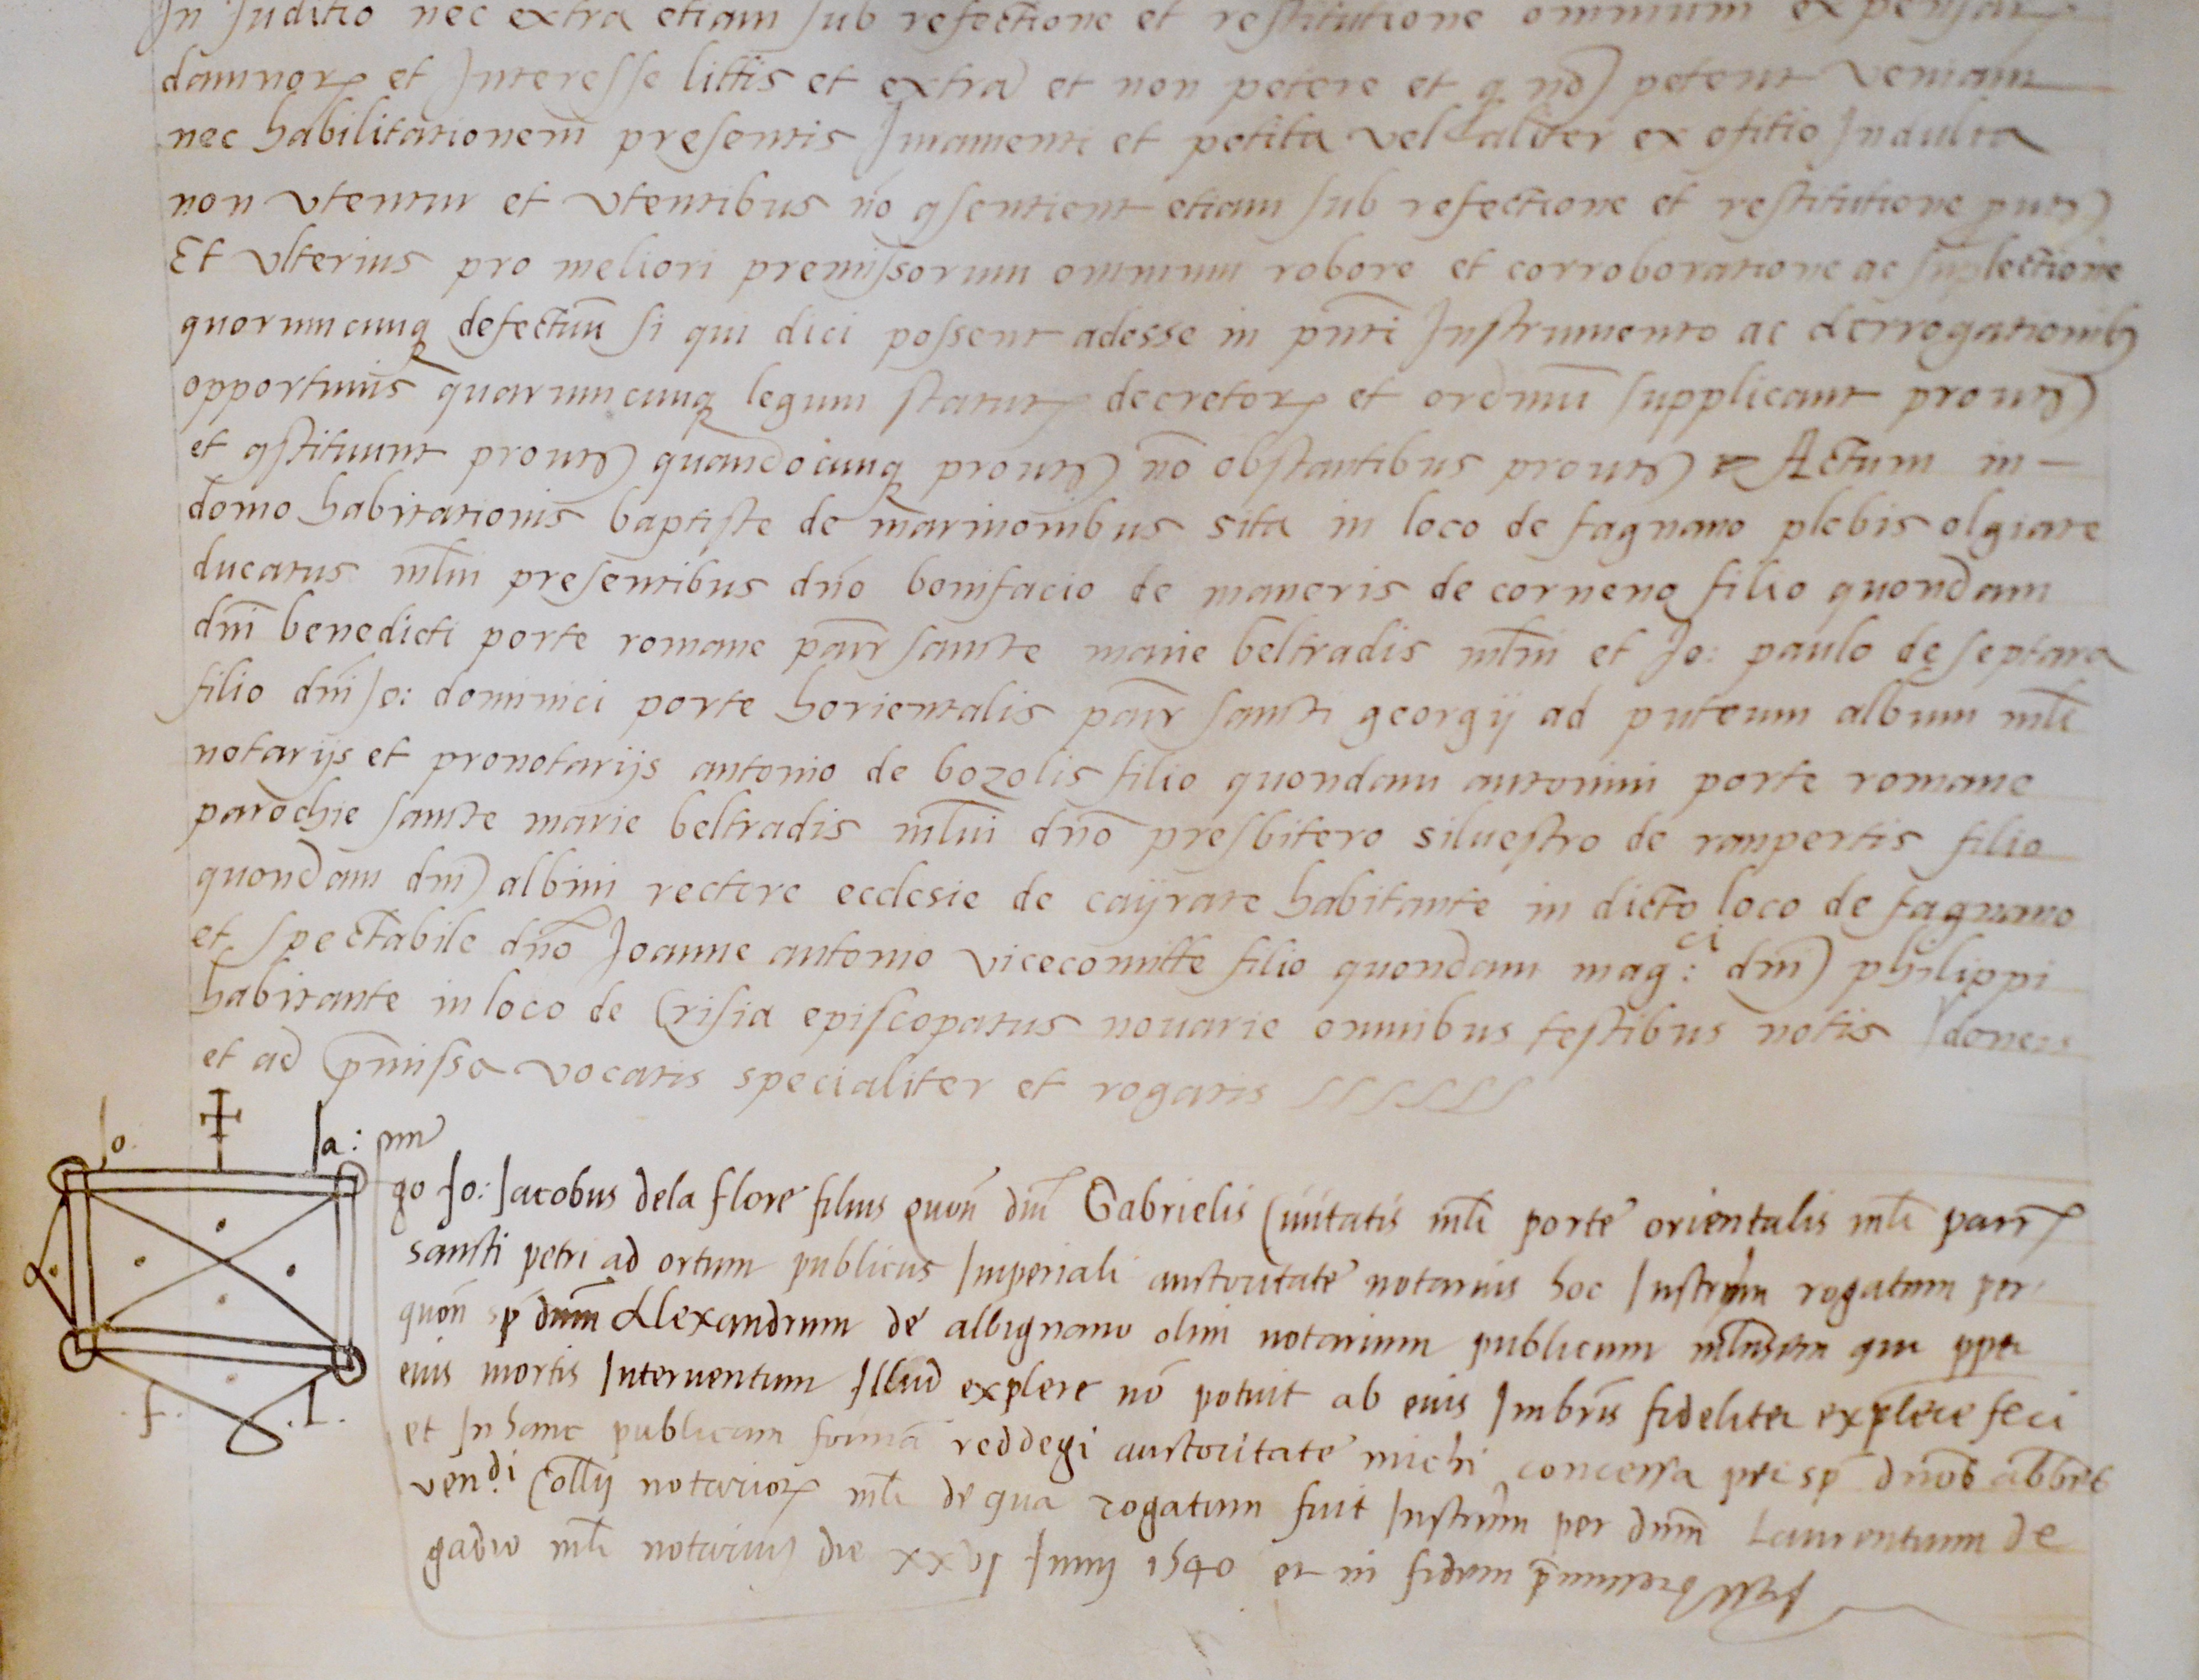 In Juditio nec extra etiam sub refectione et restitutione omnium expensarꝝ
damnorꝝ et Interesse littis et extra et non petere et q nō petent veniam
nec habilitationem presentis Juramenti et petita vel aliter ex ofitio Indulta
non vtentur et vtentibus nō ꝯsentient etiam sub refectione et restitutione
Et vlterius pro meliori premissorum omnium robore et corroboratione ac supletione
quorumcunqꝫ defectuū si qui dici possent adesse in pn̄ti Instrumento ac derrogationibꝫ
opportunis quarumcunqꝫ legum statutꝝ decretorꝝ et ordinū supplicant prout
et ꝯstituunt prout quandocunqꝫ prout nō obstantibus prout Actum in -
domo habitationis baptiste de marinonibus sita in loco de fagnano plebis olgiate
ducatus mlni presentibus dn̄o bonifacio de maneris de corneno filio quondam
dn̄i benedicti porte romane parr sancte marie beltradis mlni et Jo: paulo de septara
filio dn̄i Jo: dominici porte horientalis parr sancti georgij ad puteum album mli
notarijs et pronotarijs antonio de bozolis filio quondam antonini porte romane
parochie sancte marie beltradis mlni dn̄o presbitero siluestro de ranpertis filio
quondam dn̄i albini rectore ecclesie de cayrate habitante in dicto loco de fagnano
et spectabile dn̄o Joanne antonio vicecomitte filio quondam mag:ci dn̄i philippi
habitante in loco de Crisia episcopatus nouarie omnibus testibus notis Idoneis
et ad p̄missa vocatis specialiter et rogatis
Jo. Ja:
go Jo: Jacobus dela flore filius quon̄ dn̄i Gabrielis Ciuitatis mli porte orientalis mli parrꝝ
sancti petri ad ortum publicus Imperiali auctoritate notarius hoc Instrm̄ rogatum per
quon̄ sp̄ dn̄m Alexandrum de albignano olim notarium publicum qui ppter
eius mortis Interuentum Illud explere nō potuit ab eius Imbrīs fideliter explere feci
et In hanc publicam formā reddegi auctoritate michi concessa per sp̄ dn̄os abbēs
ven.di Collij notariorꝝ mli de qua rogatum fuit Instrm̄ per dn̄m Laurentium de
gadio mli notarium die xxvj Junij 1540 et in fidem p̄missorꝝ
.f. .I.